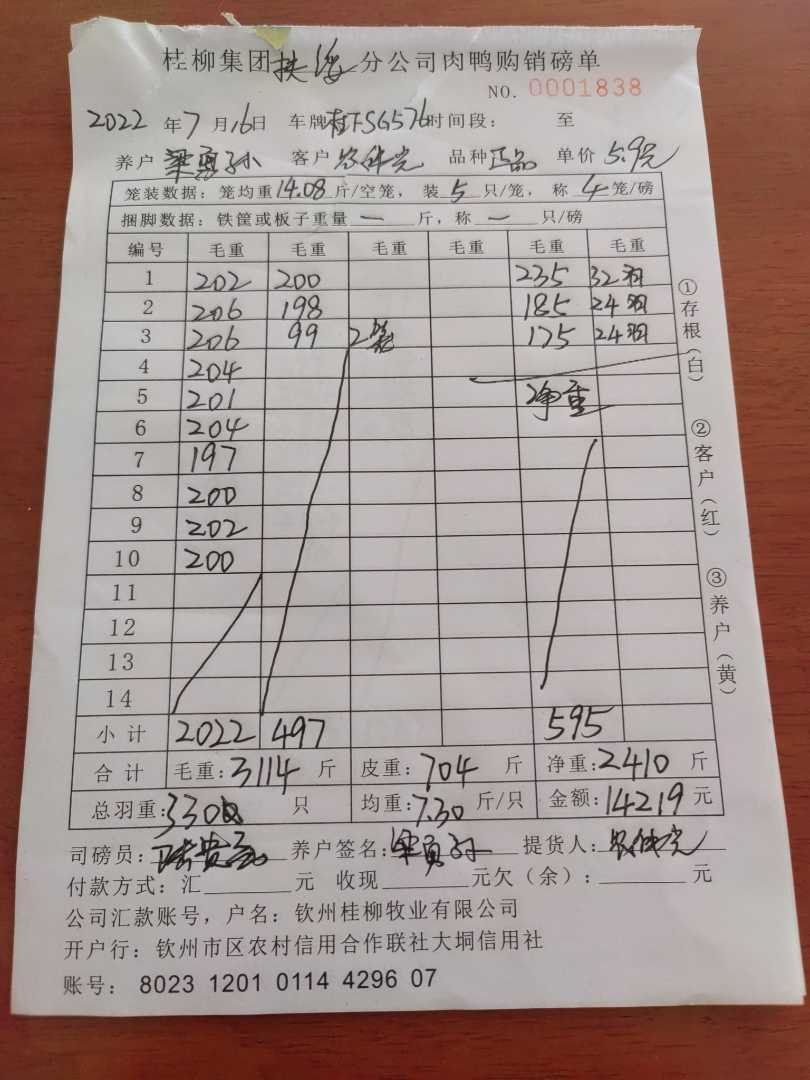 桂柳集团扶绥分公司肉鸭购销磅单
NO. 0001838
2022 年 7 月 16 日 车牌 桂FSG576 时间段： 至
养户 梁勇孙 客户 品种 正品 单价 5.9元
笼装数据：笼均重 14.08 斤/空笼，装 5 只/笼，称 4 笼/磅
捆脚数据：铁筐或板子重量 一 斤，称 一 只/磅
编号 毛重 毛重 毛重 毛重 毛重 毛重
1 202 200 235 32羽
2 206 198 185 24羽
3 206 99 2笼 175 24羽
4 204
5 201 净重
6 204
7 197
8 200
9 202
10 200
11
12
13
14
小计 2022 497 595
合计 毛重：3114 斤 皮重：704 斤 净重：2410 斤
总羽重：330 只 均重：7.30 斤/只 金额：14219 元
司磅员： 养户签名：梁勇孙 提货人：
付款方式：汇 元 收现 元欠（余）： 元
公司汇款账号，户名：钦州桂柳牧业有限公司
开户行：钦州市区农村信用合作联社大垌信用社
账号： 8023 1201 0114 4296 07
①存根（白）
②客户（红）
③养户（黄）